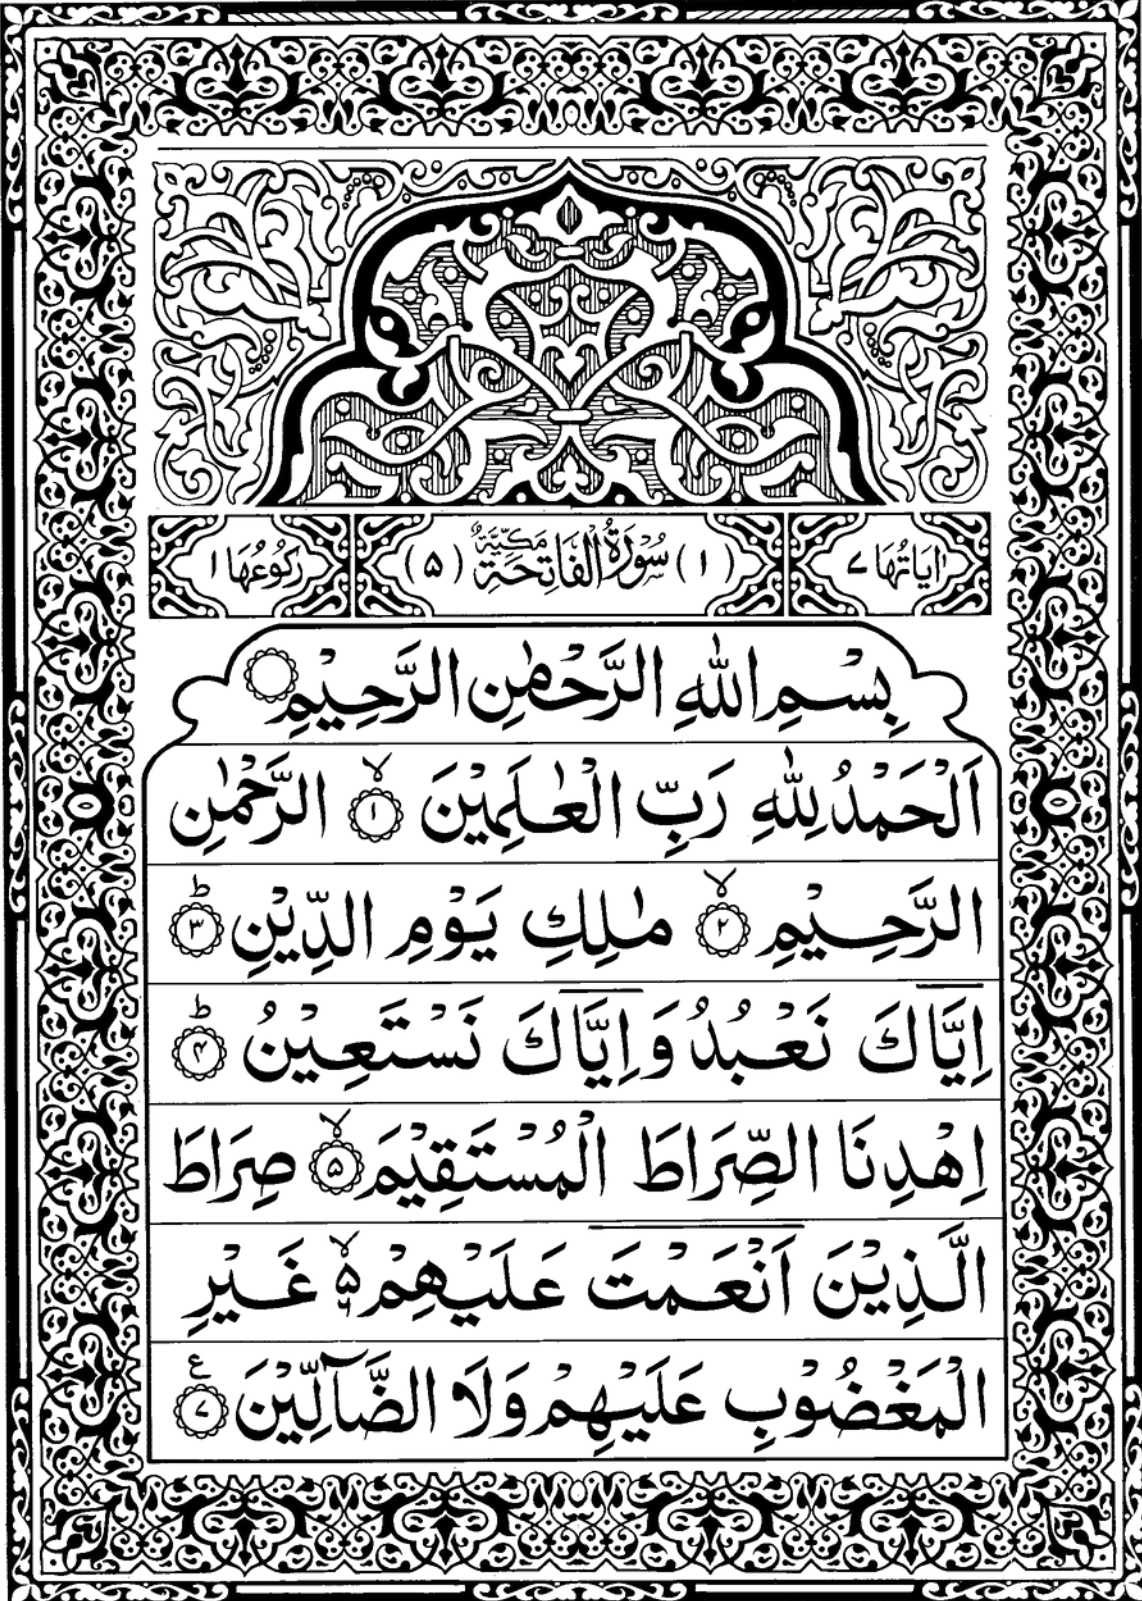 اٰيَاتُهَا ٧ (١) سُوْرَةُ الْفَاتِحَةِ مَكِّيَّةٌ (٥) رُكُوْعُهَا ١
بِسْمِ اللّٰهِ الرَّحْمٰنِ الرَّحِيْمِ
اَلْحَمْدُ لِلّٰهِ رَبِّ الْعٰلَمِيْنَ ۙ‏﴿۱﴾ الرَّحْمٰنِ
الرَّحِيْمِ ۙ‏﴿۲﴾ مٰلِكِ يَوْمِ الدِّيْنِ ؕ‏﴿۳﴾
اِيَّاكَ نَعْبُدُ وَ اِيَّاكَ نَسْتَعِيْنُ ؕ‏﴿۴﴾
اِهْدِنَا الصِّرَاطَ الْمُسْتَقِيْمَ ۙ‏﴿۵﴾ صِرَاطَ
الَّذِيْنَ اَنْعَمْتَ عَلَيْهِمْ ۙ۵ ۶ غَيْرِ
الْمَغْضُوْبِ عَلَيْهِمْ وَلَا الضَّآلِّيْنَ ع ﴿۷﴾